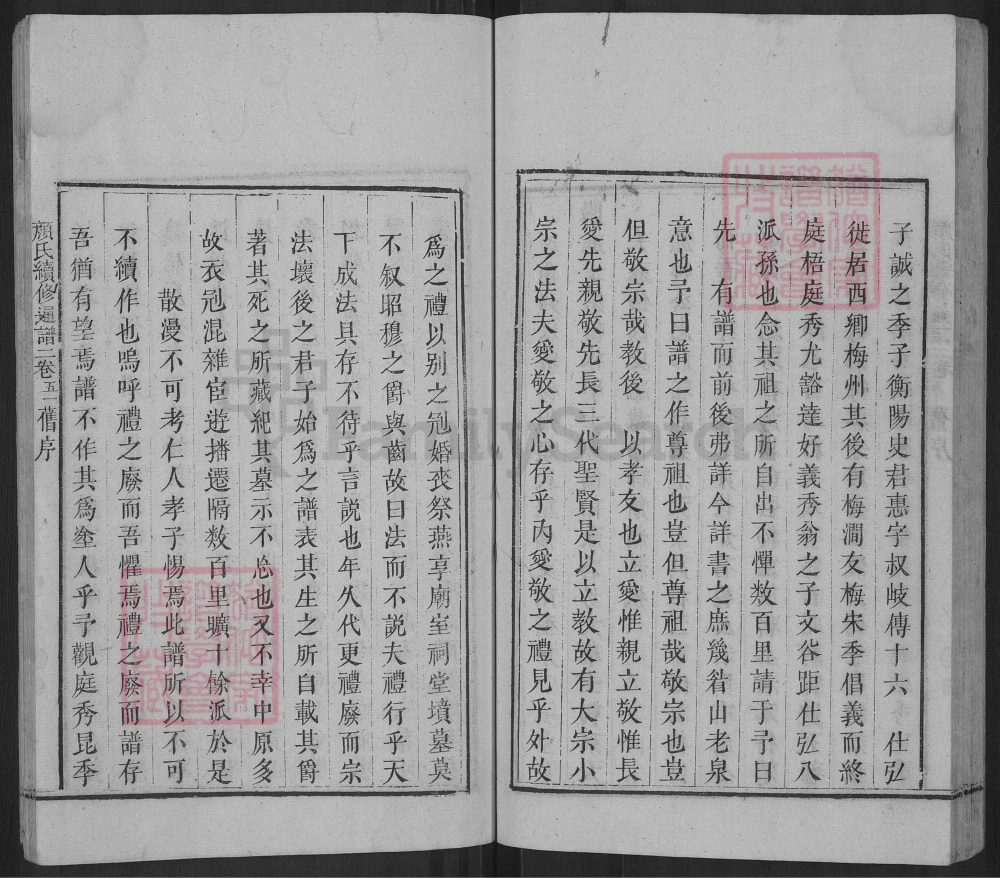 子誠之季子衡陽史君惠字叔岐傳十六 仕弘
徙居西卿梅州其後有梅澗友梅宋季倡義而終
庭梧庭秀尤豁達好義秀翁之子文谷距仕弘八
派孫也念其祖之所自出不憚数百里請于予曰
先 有譜而前後弗詳今詳書之庶幾眉山老泉
意也予曰譜之作尊祖也豈但尊祖哉敬宗也豈
但敬宗哉教後 以孝友也立愛惟親立敬惟長
愛先親敬先長三代聖賢是以立教故有大宗小
宗之法夫愛敬之心存乎内愛敬之禮見乎外故
爲之禮以别之冠婚喪祭燕享廟室祠堂墳墓莫
不叙昭穆之爵與齒故曰法而不説夫禮行乎天
下成法具存不待乎言説也年久代更禮廢而宗
法壞後之君子始爲之譜表其生之所自載其爵
著其死之所藏紀其墓示不忘也又不幸中原多
故衣冠混雜宦遊播遷隔数百里曠十餘派於是
散漫不可考仁人孝子惕焉此譜所以不可
不續作也嗚呼禮之廢而吾懼焉禮之廢而譜存
吾猶有望焉譜不作其爲塗人乎予觀庭秀昆季
顔氏續修通譜二卷五一舊序
FamilySearch